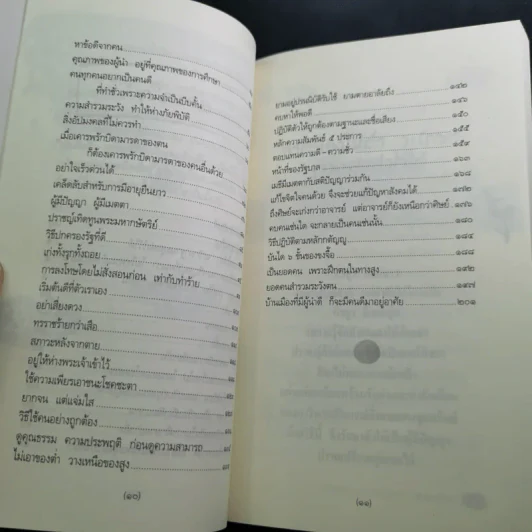 หาข้อดีจากคน
คุณภาพของผู้นำ อยู่ที่คุณภาพของการศึกษา
คนทุกคนอยากเป็นคนดี
ที่ทำชั่วเพราะความจำเป็นบีบคั้น
ความสำรวมระวัง ทำให้ห่างภัยพิบัติ
สิ่งอัปมงคลที่ไม่ควรทำ
เมื่อเคารพรักบิดามารดาของตน
ก็ต้องเคารพรักบิดามารดาของคนอื่นด้วย
อย่าใจเร็วด่วนได้
เคล็ดลับสำหรับการมีอายุยืนยาว
ผู้มีปัญญา ผู้มีเมตตา
ปราชญ์เทิดทูนพระมหากษัตริย์
วิธีปกครองรัฐที่ดี
เก่งทั้งรุกทั้งถอย
การลงโทษโดยไม่สั่งสอนก่อน เท่ากับทำร้าย
เริ่มต้นดีที่ตัวเราเอง
อย่าเสี่ยงดวง
ทรราชร้ายกว่าเสือ
สภาวะหลังจากตาย
อยู่ให้ห่างพระเจ้าเข้าไว้
ใช้ความเพียรเอาชนะโชคชะตา
ยากจน แต่แจ่มใส
วิธีใช้คนอย่างถูกต้อง
ดูคุณธรรม ความประพฤติ ก่อนดูความสามารถ
ไม่เอาของต่ำ วางเหนือของสูง
(๑๐)
ยามอยู่ปรนนิบัติรับใช้ ยามตายอาลัยถึง ๑๔๒
คบหาได้พอดี ๑๔๖
ปฏิบัติตัวให้ถูกต้องตามฐานะและชื่อเสียง ๑๕๐
หลักความสัมพันธ์ ๕ ประการ ๑๕๕
ตอบแทนความดี - ความชั่ว
หน้าที่ของรัฐบาล ๑๖๓
เมธีมีเมตตากับสติปัญญาร่วมกัน
แก้ไขจิตใจคนด้วย จึงจะช่วยแก้ปัญหาสังคมได้ ๑๗๒
ถึงศิษย์จะเก่งกว่าอาจารย์ แต่อาจารย์ก็ยังเหนือกว่าศิษย์ ๑๗๖
คบคนเช่นใด จะกลายเป็นคนเช่นนั้น
วิธีปฏิบัติตามหลักกตัญญู ๑๘๔
บันได ๖ ขั้นของขงจื้อ ๑๘๘
เป็นยอดคน เพราะฝึกตนในทางสูง ๑๙๒
ยอดคนสำรวมระวังตน ๑๙๗
บ้านเมืองที่มีผู้นำดี ก็จะมีคนดีมาอยู่อาศัย ๒๐๑
(๑๑)